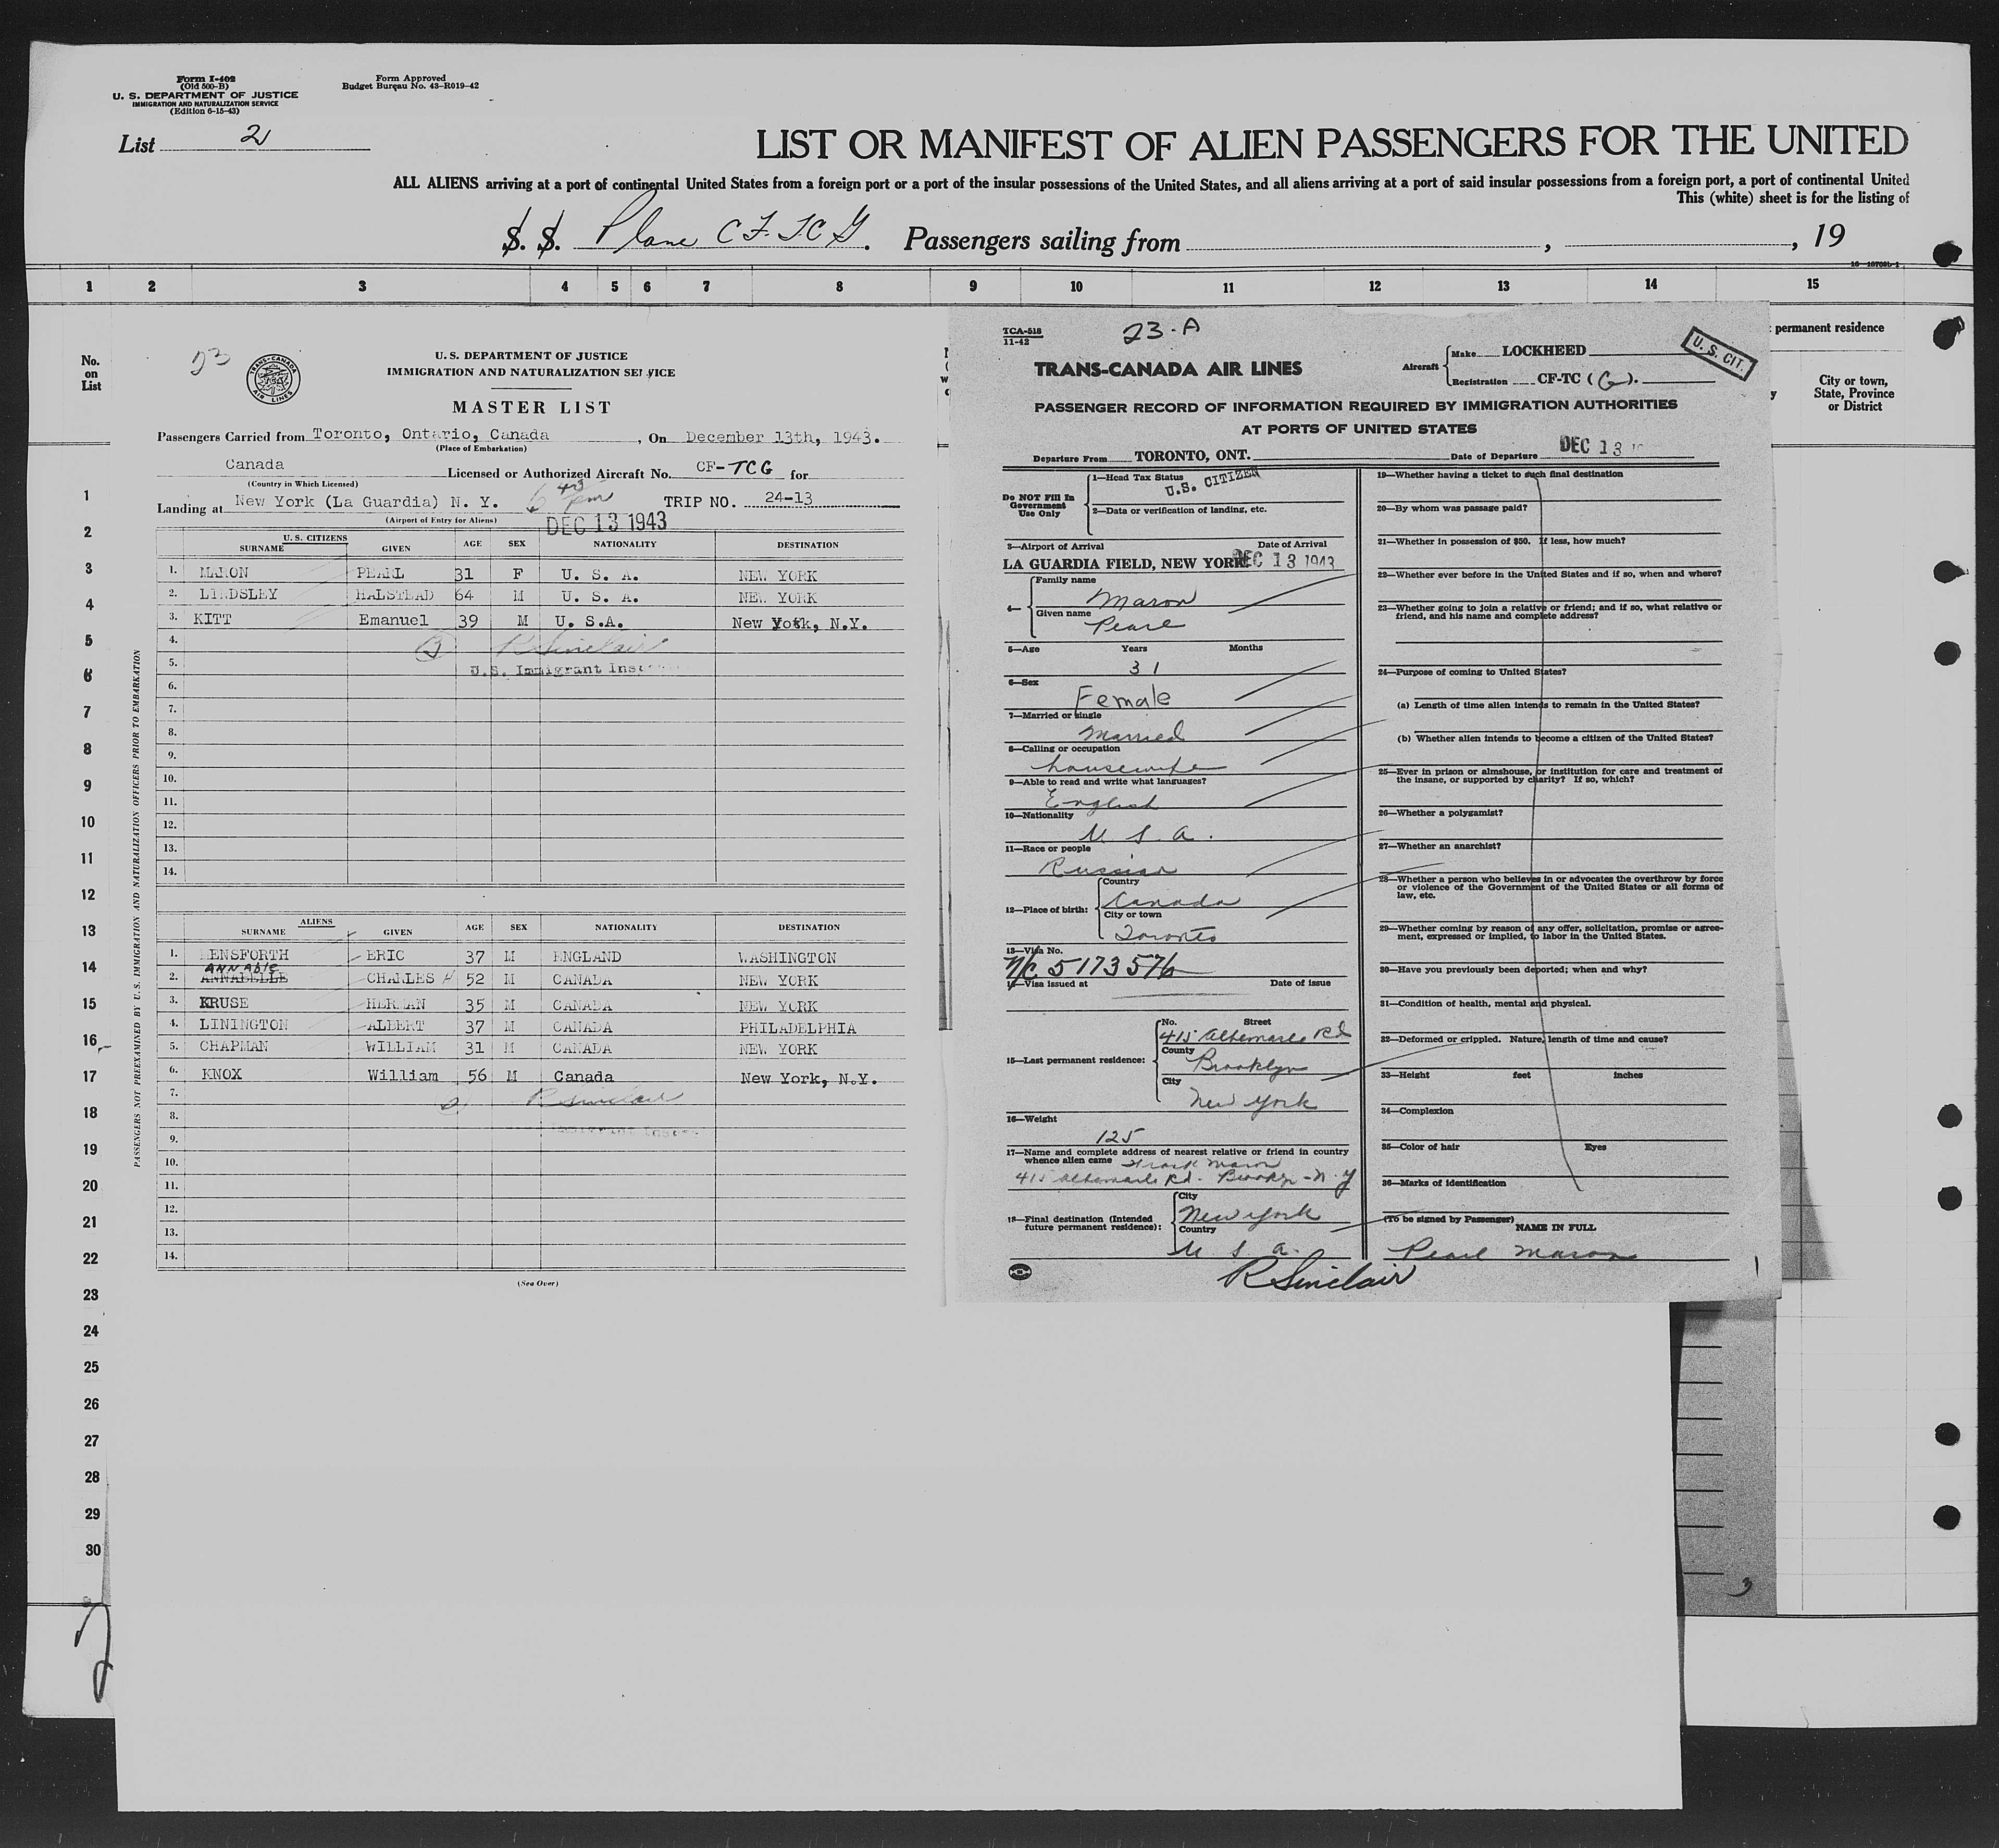 Form I-402
(Old 500-B)
U. S. DEPARTMENT OF JUSTICE
IMMIGRATION AND NATURALIZATION SERVICE
(Edition 6-15-43)
Form Approved
Budget Bureau No. 43-R019-42
List 2
LIST OR MANIFEST OF ALIEN PASSENGERS FOR THE UNITED
ALL ALIENS arriving at a port of continental United States from a foreign port or a port of the insular possessions of the United States, and all aliens arriving at a port of said insular possessions from a foreign port, a port of continental United
This (white) sheet is for the listing of
S. S. Plane CF-TCG. Passengers sailing from , , 19
1 2 3 4 5 6 7 8 9 10 11 12 13 14 15
No.
on
List
permanent residence
City or town,
State, Province
or District
1
2
3
4
5
6
7
8
9
10
11
12
13
14
15
16
17
18
19
20
21
22
23
24
25
26
27
28
29
30
23
TRANS-CANADA AIR LINES
U. S. DEPARTMENT OF JUSTICE
IMMIGRATION AND NATURALIZATION SERVICE
MASTER LIST
Passengers Carried from Toronto, Ontario, Canada, On December 13th, 1943.
(Place of Embarkation)
Canada Licensed or Authorized Aircraft No. CF-TCG for
(Country in Which Licensed)
Landing at New York (La Guardia) N. Y. 6 43 pm TRIP NO. 24-13
(Airport of Entry for Aliens)
DEC 13 1943
U. S. CITIZENS
SURNAME GIVEN AGE SEX NATIONALITY DESTINATION
1. MARON PEARL 31 F U. S. A. NEW YORK
2. LINDSLEY HALSTEAD 64 M U. S. A. NEW YORK
3. KITT Emanuel 39 M U. S.A. New York, N.Y.
4. 3 R Sinclair
5. U.S. Immigrant
6.
7.
8.
9.
10.
11.
12.
13.
14.
ALIENS
SURNAME GIVEN AGE SEX NATIONALITY DESTINATION
1. HENSFORTH ERIC 37 M ENGLAND WASHINGTON
ANNABLE
2. ANNABELLE CHARLES H 52 M CANADA NEW YORK
3. KRUSE HERMAN 35 M CANADA NEW YORK
4. LININGTON ALBERT 37 M CANADA PHILADELPHIA
5. CHAPMAN WILLIAM 31 M CANADA NEW YORK
6. KNOX William 56 M Canada New York, N.Y.
7. R Sinclair
8.
9.
10.
11.
12.
13.
14.
(See Over)
PASSENGERS NOT PREEXAMINED BY U.S. IMMIGRATION AND NATURALIZATION OFFICERS PRIOR TO EMBARKATION
TCA-518
11-42
23-A
TRANS-CANADA AIR LINES
Aircraft
Make LOCKHEED
Registration CF-TC (G).
U. S. CIT.
PASSENGER RECORD OF INFORMATION REQUIRED BY IMMIGRATION AUTHORITIES
AT PORTS OF UNITED STATES
Departure From TORONTO, ONT. Date of Departure DEC 13
Do NOT Fill In
Government
Use Only
1—Head Tax Status
U.S. CITIZEN
2—Data or verification of landing, etc.
3—Airport of Arrival Date of Arrival
LA GUARDIA FIELD, NEW YORK DEC 13 1943
4—
Family name
Maron
Given name
Pearl
5—Age Years Months
31
6—Sex
Female
7—Married or single
Married
8—Calling or occupation
housewife
9—Able to read and write what languages?
English
10—Nationality
U S. A.
11—Race or people
Russian
12—Place of birth:
Country
Canada
City or town
Toronto
13—Visa No.
N/C 5173576
14—Visa issued at Date of issue
15—Last permanent residence:
No. Street
415 Albemarle Rd
County
Brooklyn
City
New York
16—Weight
125
17—Name and complete address of nearest relative or friend in country
whence alien came Frank Maron
415 Albemarle Rd. Brooklyn - N Y
18—Final destination (Intended
future permanent residence):
City
New York
Country
U S a.
19—Whether having a ticket to such final destination
20—By whom was passage paid?
21—Whether in possession of $50. If less, how much?
22—Whether ever before in the United States and if so, when and where?
23—Whether going to join a relative or friend; and if so, what relative or
friend, and his name and complete address?
24—Purpose of coming to United States?
(a) Length of time alien intends to remain in the United States?
(b) Whether alien intends to become a citizen of the United States?
25—Ever in prison or almshouse, or institution for care and treatment of
the insane, or supported by charity? If so, which?
26—Whether a polygamist?
27—Whether an anarchist?
28—Whether a person who believes in or advocates the overthrow by force
or violence of the Government of the United States or all forms of
law, etc.
29—Whether coming by reason of any offer, solicitation, promise or agree-
ment, expressed or implied, to labor in the United States.
30—Have you previously been deported; when and why?
31—Condition of health, mental and physical.
32—Deformed or crippled. Nature, length of time and cause?
33—Height feet inches
34—Complexion
35—Color of hair Eyes
36—Marks of identification
(To be signed by Passenger) NAME IN FULL
Pearl Maron
R Sinclair
3